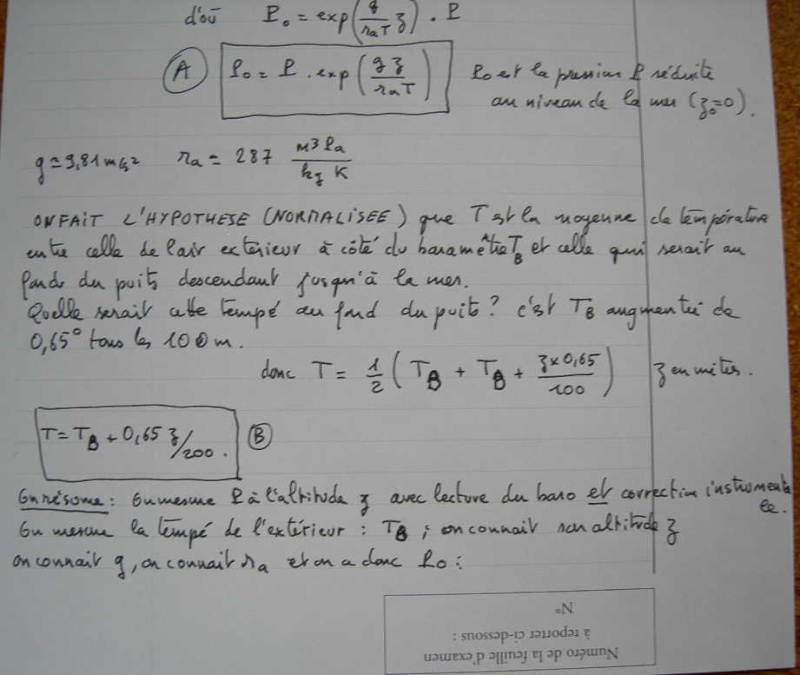 d'où P₀ = exp(g/raT z) . P
(A) P₀ = P . exp(gz/raT) P₀ est la pression P réduite
au niveau de la mer (z₀=0).
g ≃ 9,81 m/s² ra = 287 m³Pa/kg K
ON FAIT L'HYPOTHESE (NORMALISEE) que T est la moyenne de température
entre celle de l'air extérieur à côté du baromètre T_B et celle qui serait au
fond du puits descendant jusqu'à la mer.
Quelle serait cette tempé au fond du puits ? c'est T_B augmentée de
0,65° tous les 100 m.
donc T = 1/2 (T_B + T_B + z×0,65/100) z en mètres.
T = T_B + 0,65 z/200. (B)
En résumé : on mesure P à l'altitude z avec lecture du baro et correction instrumenta
le.
On mesure la tempé de l'extérieur : T_B ; on connait son altitude z
on connait g, on connait ra et on a donc P₀ :
Numéro de la feuille d'examen
à reporter ci-dessous :
N°